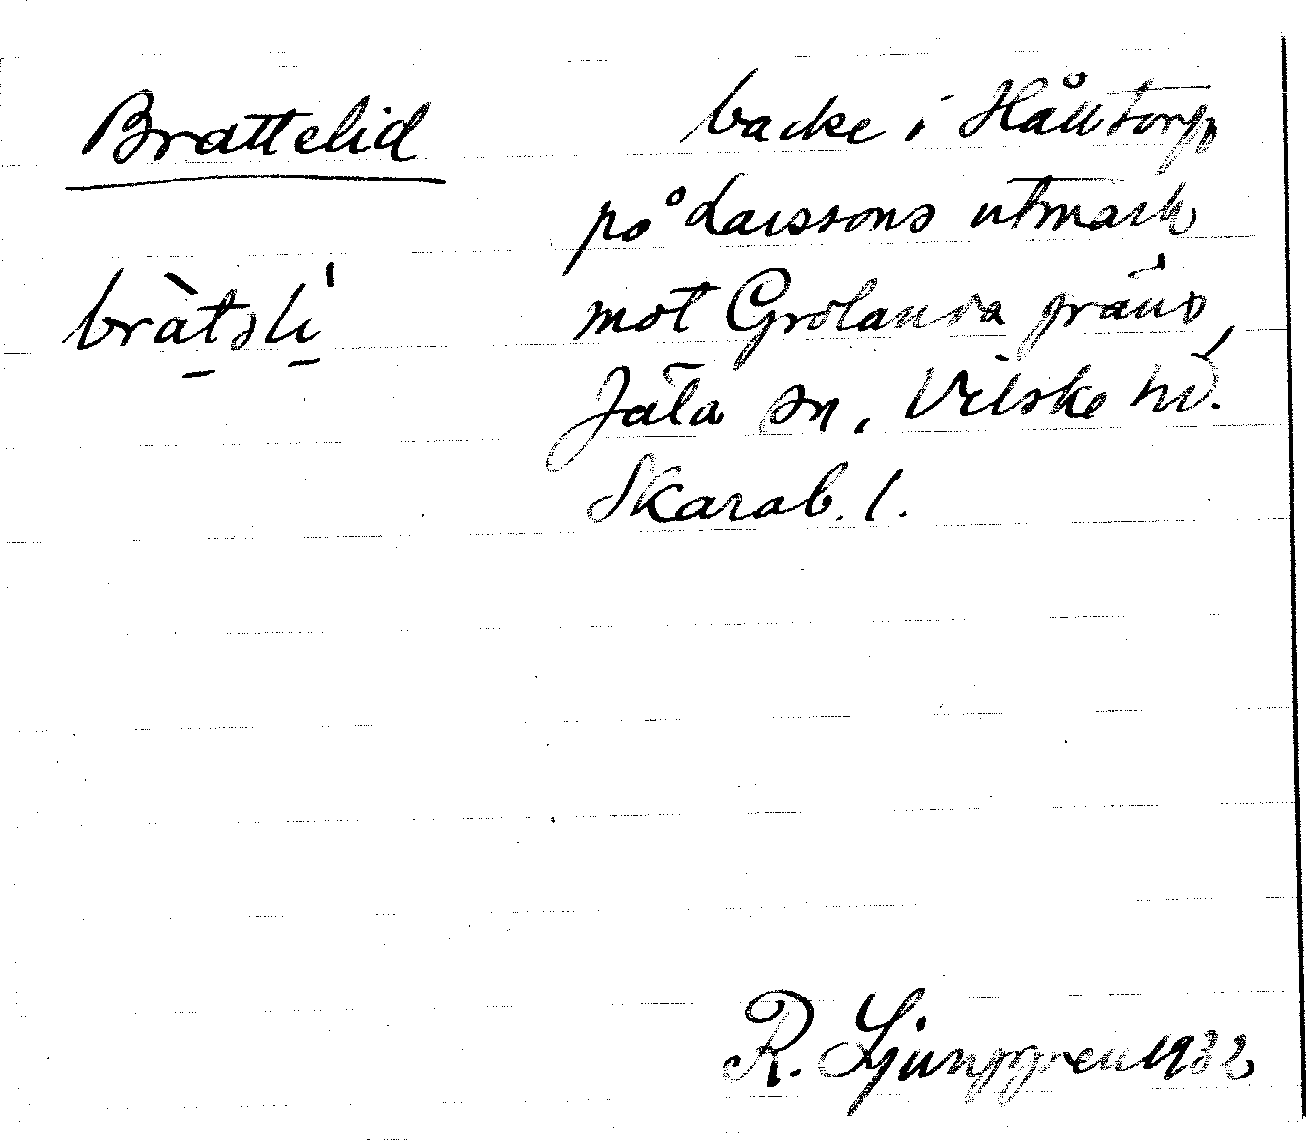 Brattelid
bràtslì
backe i Hålltorp
på Larssons utmark
mot Grolanda gräns,
Jäla sn, Vilske hd.
Skarab. l.
R. Ljunggren 1932